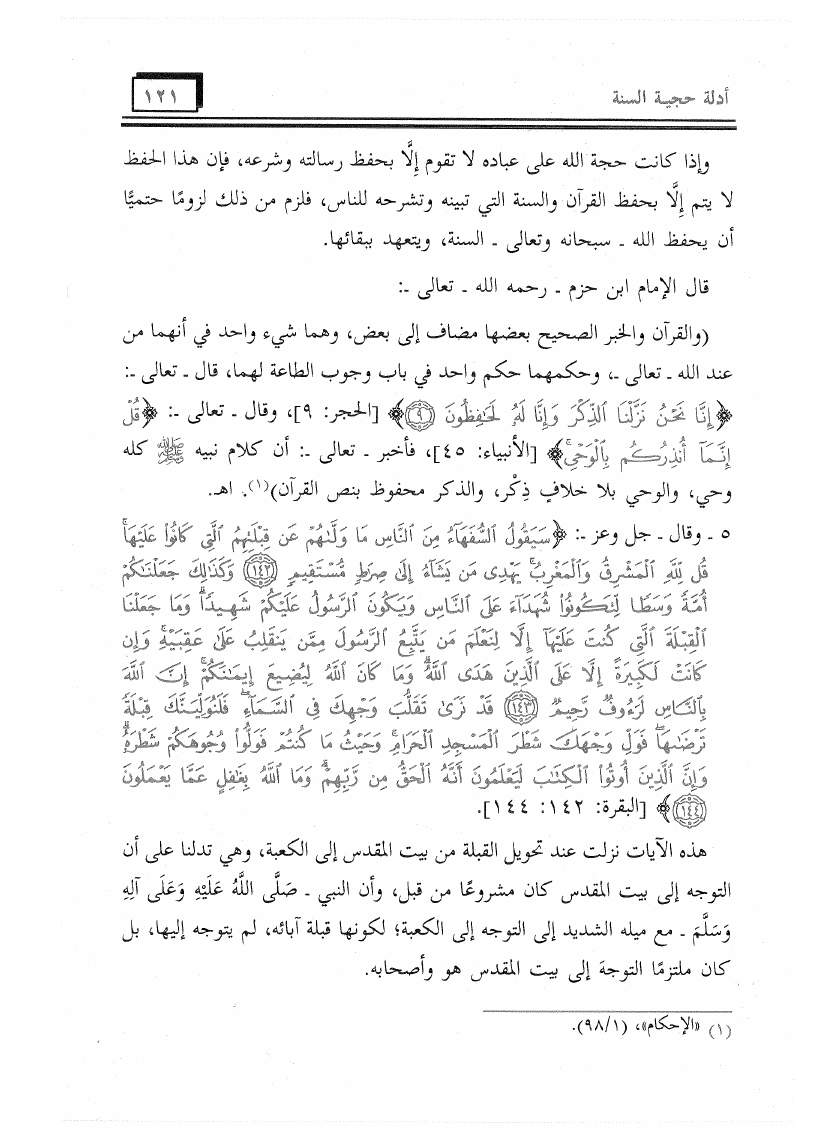 أدلة حجية السنة
١٢١
وإذا كانت حجة الله على عباده لا تقوم إلَّا بحفظ رسالته وشرعه، فإن هذا الحفظ
لا يتم إلَّا بحفظ القرآن والسنة التي تبينه وتشرحه للناس، فلزم من ذلك لزومًا حتميًّا
أن يحفظ الله ـ سبحانه وتعالى ـ السنة، ويتعهد ببقائها.
قال الإمام ابن حزم ـ رحمه الله ـ تعالى ـ:
(والقرآن والخبر الصحيح بعضها مضاف إلى بعض، وهما شيء واحد في أنهما من
عند الله ـ تعالى ـ، وحكمهما حكم واحد في باب وجوب الطاعة لهما، قال ـ تعالى ـ:
﴿إِنَّا نَحْنُ نَزَّلْنَا ٱلذِّكْرَ وَإِنَّا لَهُۥ لَحَٰفِظُونَ ۝٩﴾ [الحجر: ٩]، وقال ـ تعالى ـ: ﴿قُلْ
إِنَّمَآ أُنذِرُكُم بِٱلْوَحْىِ ۚ﴾ [الأنبياء: ٤٥]، فأخبر ـ تعالى ـ: أن كلام نبيه ﷺ كله
وحي، والوحي بلا خلافٍ ذِكْر، والذكر محفوظ بنص القرآن)(١). اهـ.
٥ ـ وقال ـ جل وعز ـ: ﴿سَيَقُولُ ٱلسُّفَهَآءُ مِنَ ٱلنَّاسِ مَا وَلَّىٰهُمْ عَن قِبْلَتِهِمُ ٱلَّتِى كَانُوا۟ عَلَيْهَا ۚ
قُل لِّلَّهِ ٱلْمَشْرِقُ وَٱلْمَغْرِبُ ۚ يَهْدِى مَن يَشَآءُ إِلَىٰ صِرَٰطٍ مُّسْتَقِيمٍ ۝١٤٢ وَكَذَٰلِكَ جَعَلْنَٰكُمْ
أُمَّةً وَسَطًا لِّتَكُونُوا۟ شُهَدَآءَ عَلَى ٱلنَّاسِ وَيَكُونَ ٱلرَّسُولُ عَلَيْكُمْ شَهِيدًا ۗ وَمَا جَعَلْنَا
ٱلْقِبْلَةَ ٱلَّتِى كُنتَ عَلَيْهَآ إِلَّا لِنَعْلَمَ مَن يَتَّبِعُ ٱلرَّسُولَ مِمَّن يَنقَلِبُ عَلَىٰ عَقِبَيْهِ ۚ وَإِن
كَانَتْ لَكَبِيرَةً إِلَّا عَلَى ٱلَّذِينَ هَدَى ٱللَّهُ ۗ وَمَا كَانَ ٱللَّهُ لِيُضِيعَ إِيمَٰنَكُمْ ۚ إِنَّ ٱللَّهَ
بِٱلنَّاسِ لَرَءُوفٌ رَّحِيمٌ ۝١٤٣ قَدْ نَرَىٰ تَقَلُّبَ وَجْهِكَ فِى ٱلسَّمَآءِ ۖ فَلَنُوَلِّيَنَّكَ قِبْلَةً
تَرْضَىٰهَا ۚ فَوَلِّ وَجْهَكَ شَطْرَ ٱلْمَسْجِدِ ٱلْحَرَامِ ۚ وَحَيْثُ مَا كُنتُمْ فَوَلُّوا۟ وُجُوهَكُمْ شَطْرَهُۥ ۗ
وَإِنَّ ٱلَّذِينَ أُوتُوا۟ ٱلْكِتَٰبَ لَيَعْلَمُونَ أَنَّهُ ٱلْحَقُّ مِن رَّبِّهِمْ ۗ وَمَا ٱللَّهُ بِغَٰفِلٍ عَمَّا يَعْمَلُونَ
۝١٤٤﴾ [البقرة: ١٤٢: ١٤٤].
هذه الآيات نزلت عند تحويل القبلة من بيت المقدس إلى الكعبة، وهي تدلنا على أن
التوجه إلى بيت المقدس كان مشروعًا من قبل، وأن النبي ـ صَلَّى اللَّهُ عَلَيْهِ وَعَلَى آلِهِ
وَسَلَّمَ ـ مع ميله الشديد إلى التوجه إلى الكعبة؛ لكونها قبلة آبائه، لم يتوجه إليها، بل
كان ملتزمًا التوجهَ إلى بيت المقدس هو وأصحابه.
(١) «الإحكام»، (٩٨/١).